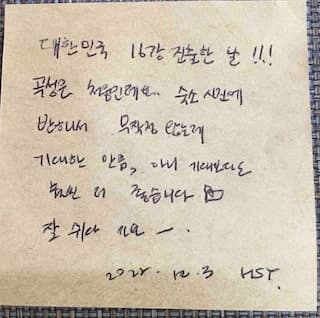 대한민국 16강 진출한 날 !!!
곡성은 처음인데요.. 숙소 사진에
반해서 무작정 왔는데
기대한 만큼, 아니 기대보다도
훨씬 더 좋습니다
잘 쉬다 가요 ~.
2022. 12. 3 HST.